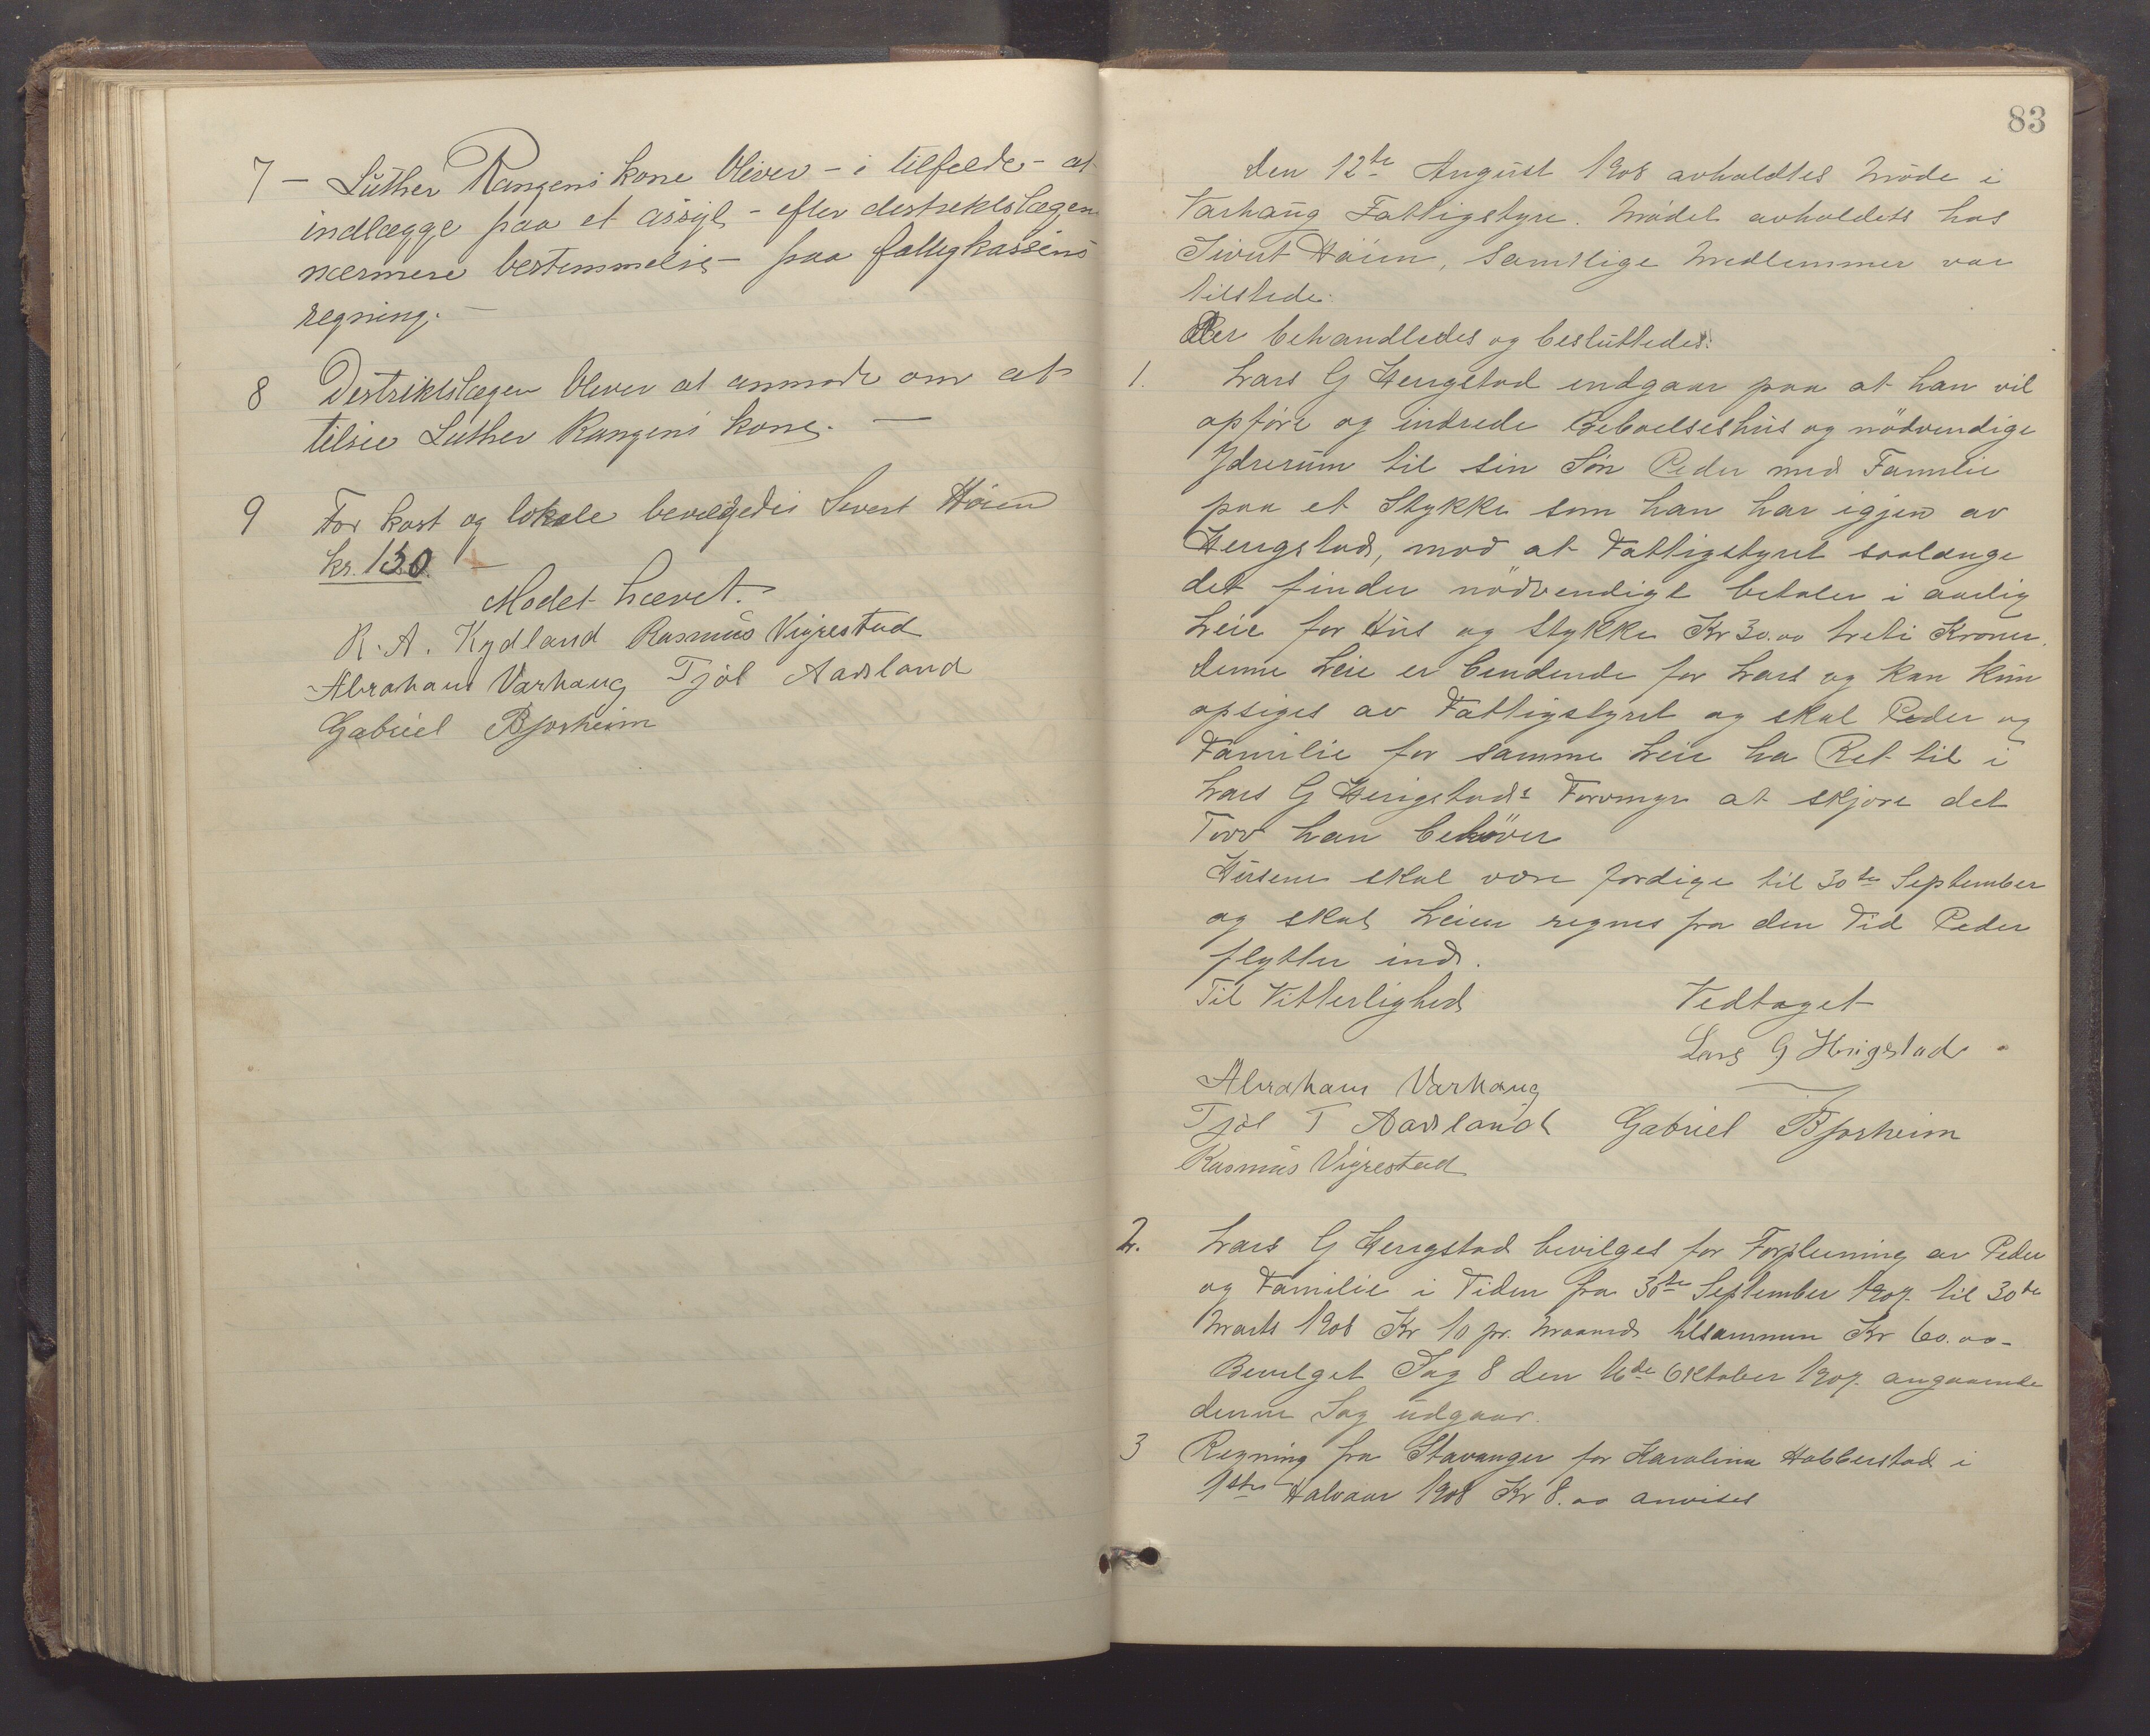 7 – Luther Rangens kone bliver – i tilfelde – at
indlægge paa et assyl – efter destriktslægen
nærmere bestemmelse – paa fattigkassens
regning. –
8 Destriktslægen bliver at anmode om at
tilsee Luther Rangens kone. –
9 For kost og lokale bevilgedes Sivert Höien
kr. 130. –
Modet hævet.
R. A. Kydland Rasmus Vigrestad
Abraham Varhaug Tjöl Aadsland
Gabriel Bjorheim
83
Den 12te August 1908 avholdtes Möde i
Varhaug Fattigstyre. Mödet avholdets hos
Sivert Höien, Samtlige Medlemmer var
tilstede.
Der behandledes og besluttedes:
1. Lars G Herigstad indgaar paa at han vil
opföre og indrede Beboelseshus og nödvendige
Ydrerum til sin Sön Peder med Familie
paa et Stykke som han har igjen av
Herigstad, mod at Fattigstyret saalænge
det finder nödvendigt betaler i aarlig
Leie for Hus og Stykke Kr 30.00 treti Kroner.
Denne Leie er bindende for Lars og kan kun
opsiges av Fattigstyret og skal Peder og
Familie for samme Leie ha Ret til i
Lars G Herigstads Torvmyr at skjære det
Torv han behöver
Husene skal være færdige til 30te September
og skal Leien regnes fra den Tid Peder
flytter ind.
Til Vitterlighed Vedtaget
Lars G Herigstad
Abraham Varhaug
Tjöl T Aadsland Gabriel Bjorheim
Rasmus Vigrestad
2. Lars G Herigstad bevilges for Forpleining av Peder
og Familie i Tiden fra 30te September 1907 til 30te
Marts 1908 Kr 10 pr. Maaned tilsammen Kr 60.00 –
Bevilget Sag 8 den 16de Oktober 1907 angaaende
denne Sag udgaar.
3 Regning fra Stavanger for Karoline Hobberstad i
1ste Halvaar 1908 Kr 8.00 anvises